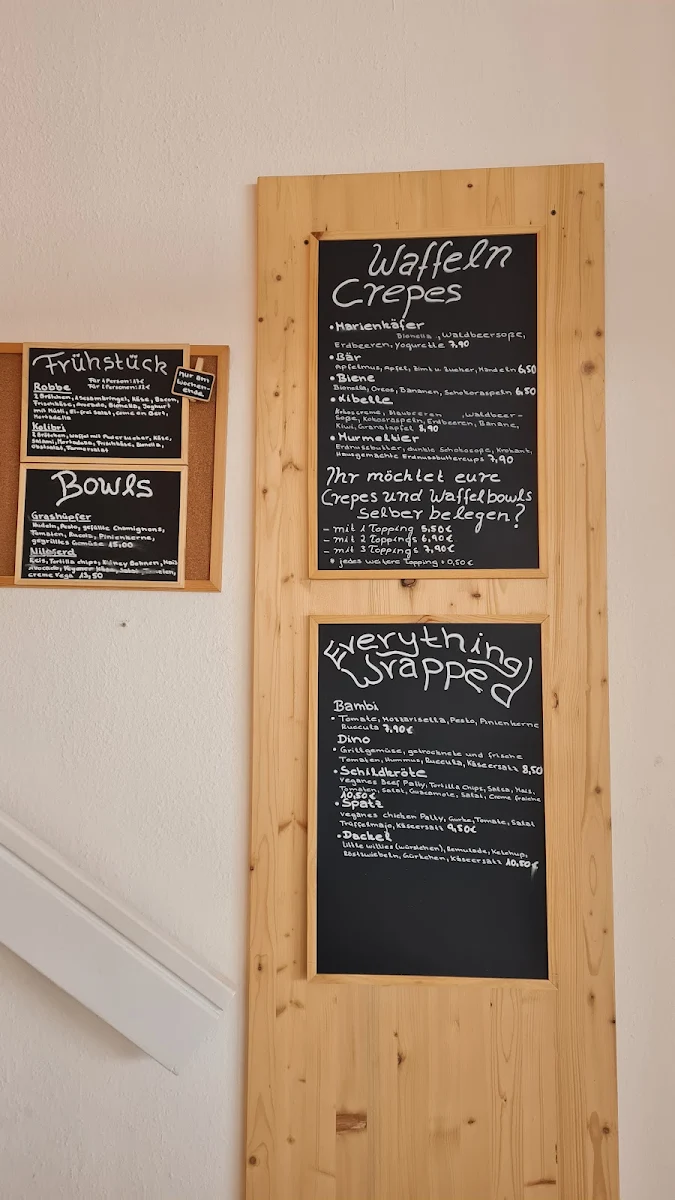 Frühstück
Robbe
Für 1 Person:
Für 2 Personen:
nur am
Wochen-
ende
2 Brötchen, Käse, Bacon,
Frischkäse, Avocado, Bionella, Joghurt
mit Müsli, Ei-frei Salat,
Mortadella
Kolibri
2 Brötchen, Waffel mit Puderzucker, Käse,
Salami, Mortadella, Frischkäse, Bionella,
Obstsalat, Tomatensalat
Bowls
Grashüpfer
Nudeln, Pesto, gefüllte Champignons,
Tomaten, Rucola, Pinienkerne,
gegrilltes Gemüse 15,00
Nilpferd
Reis, Tortilla chips, Kidney Bohnen, Mais
Avocado, Veganer Käse, Salat,
creme Vega 13,50
Waffeln
Crepes
• Marienkäfer
Bionella, Waldbeersoße,
Erdbeeren, Yogurette 7,90
• Bär
Apfelmus, Apfel, Zimt u. Zucker, Mandeln 6,50
• Biene
Bionella, Oreos, Bananen, Schokoraspeln 6,50
• Libelle
Kokoscreme, Blaubeeren, Waldbeer-
soße, Kokosraspeln, Erdbeeren, Banane,
Kiwi, Granatapfel 8,90
• Murmeltier
Erdnussbutter, dunkle Schokosoße, Krokant,
Hausgemachte Erdnussbuttercups 7,90
Ihr möchtet eure
Crepes und Waffelbowls
selber belegen?
- mit 1 Topping 5,50€
- mit 2 Toppings 6,90€
- mit 3 Toppings 7,90€
* jedes weitere Topping + 0,50€
Everything
Wrapped
Bambi
• Tomate, Mozzarisella, Pesto, Pinienkerne
Ruccula 7,90€
Dino
• Grillgemüse, getrocknete und frische
Tomaten, Hummus, Ruccula, Käseersatz 8,50
• Schildkröte
Veganes Beef Patty, Tortilla Chips, Salsa, Mais,
Tomaten, Salat, Guacamole, Salat, Creme fraiche
10,50€
• Spatz
veganes chicken Patty, Gurke, Tomate, Salat
Trüffelmajo, Käseersatz 9,50€
• Dackel
Little willies (würstchen), Remulade, Ketchup,
Röstzwiebeln, Gürkchen, Käseersatz 10,50€